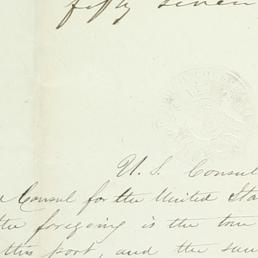 fifty seven
U. S. Consul
Consul for the United Sta
the foregoing is the true
this port, and the same